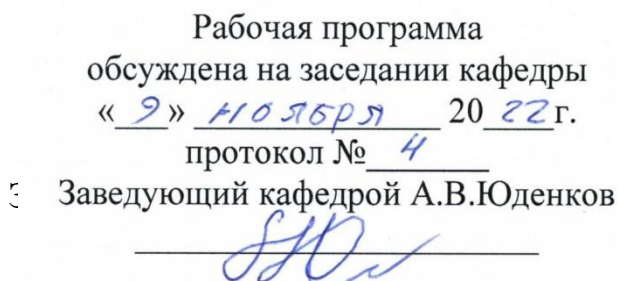 Рабочая программа
обсуждена на заседании кафедры
«9» ноября 2022г.
протокол № 4
Заведующий кафедрой А.В.Юденков